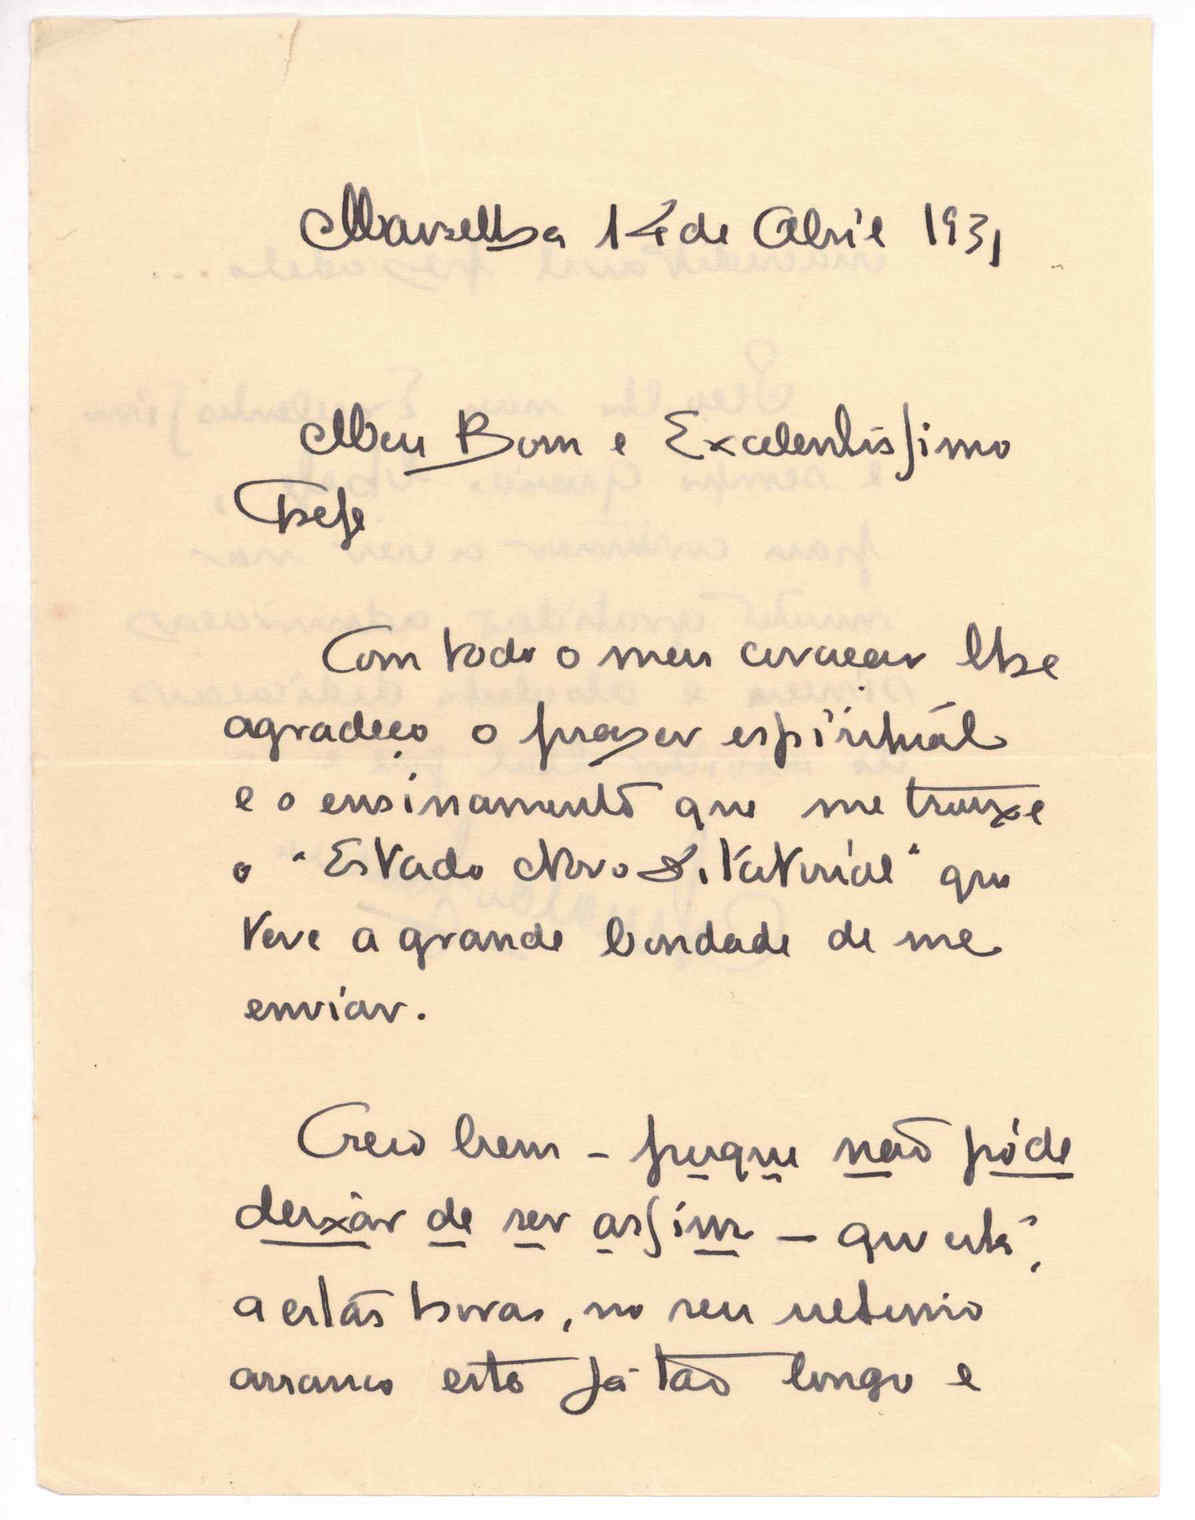 Marselha 14 de Abril 1931
Meu Bom e Excelentissimo
Chefe
Com todo o meu coração lhe
agradeço o prazer espirituál
e o ensinamento que me trouxe
o "Estado Novo Ditatorial" que
teve a grande bondade de me
enviar.
Creio bem – porque não póde
deixár de ser assim – que está,
a estás horas, no seu
arranco esto já tão longo e